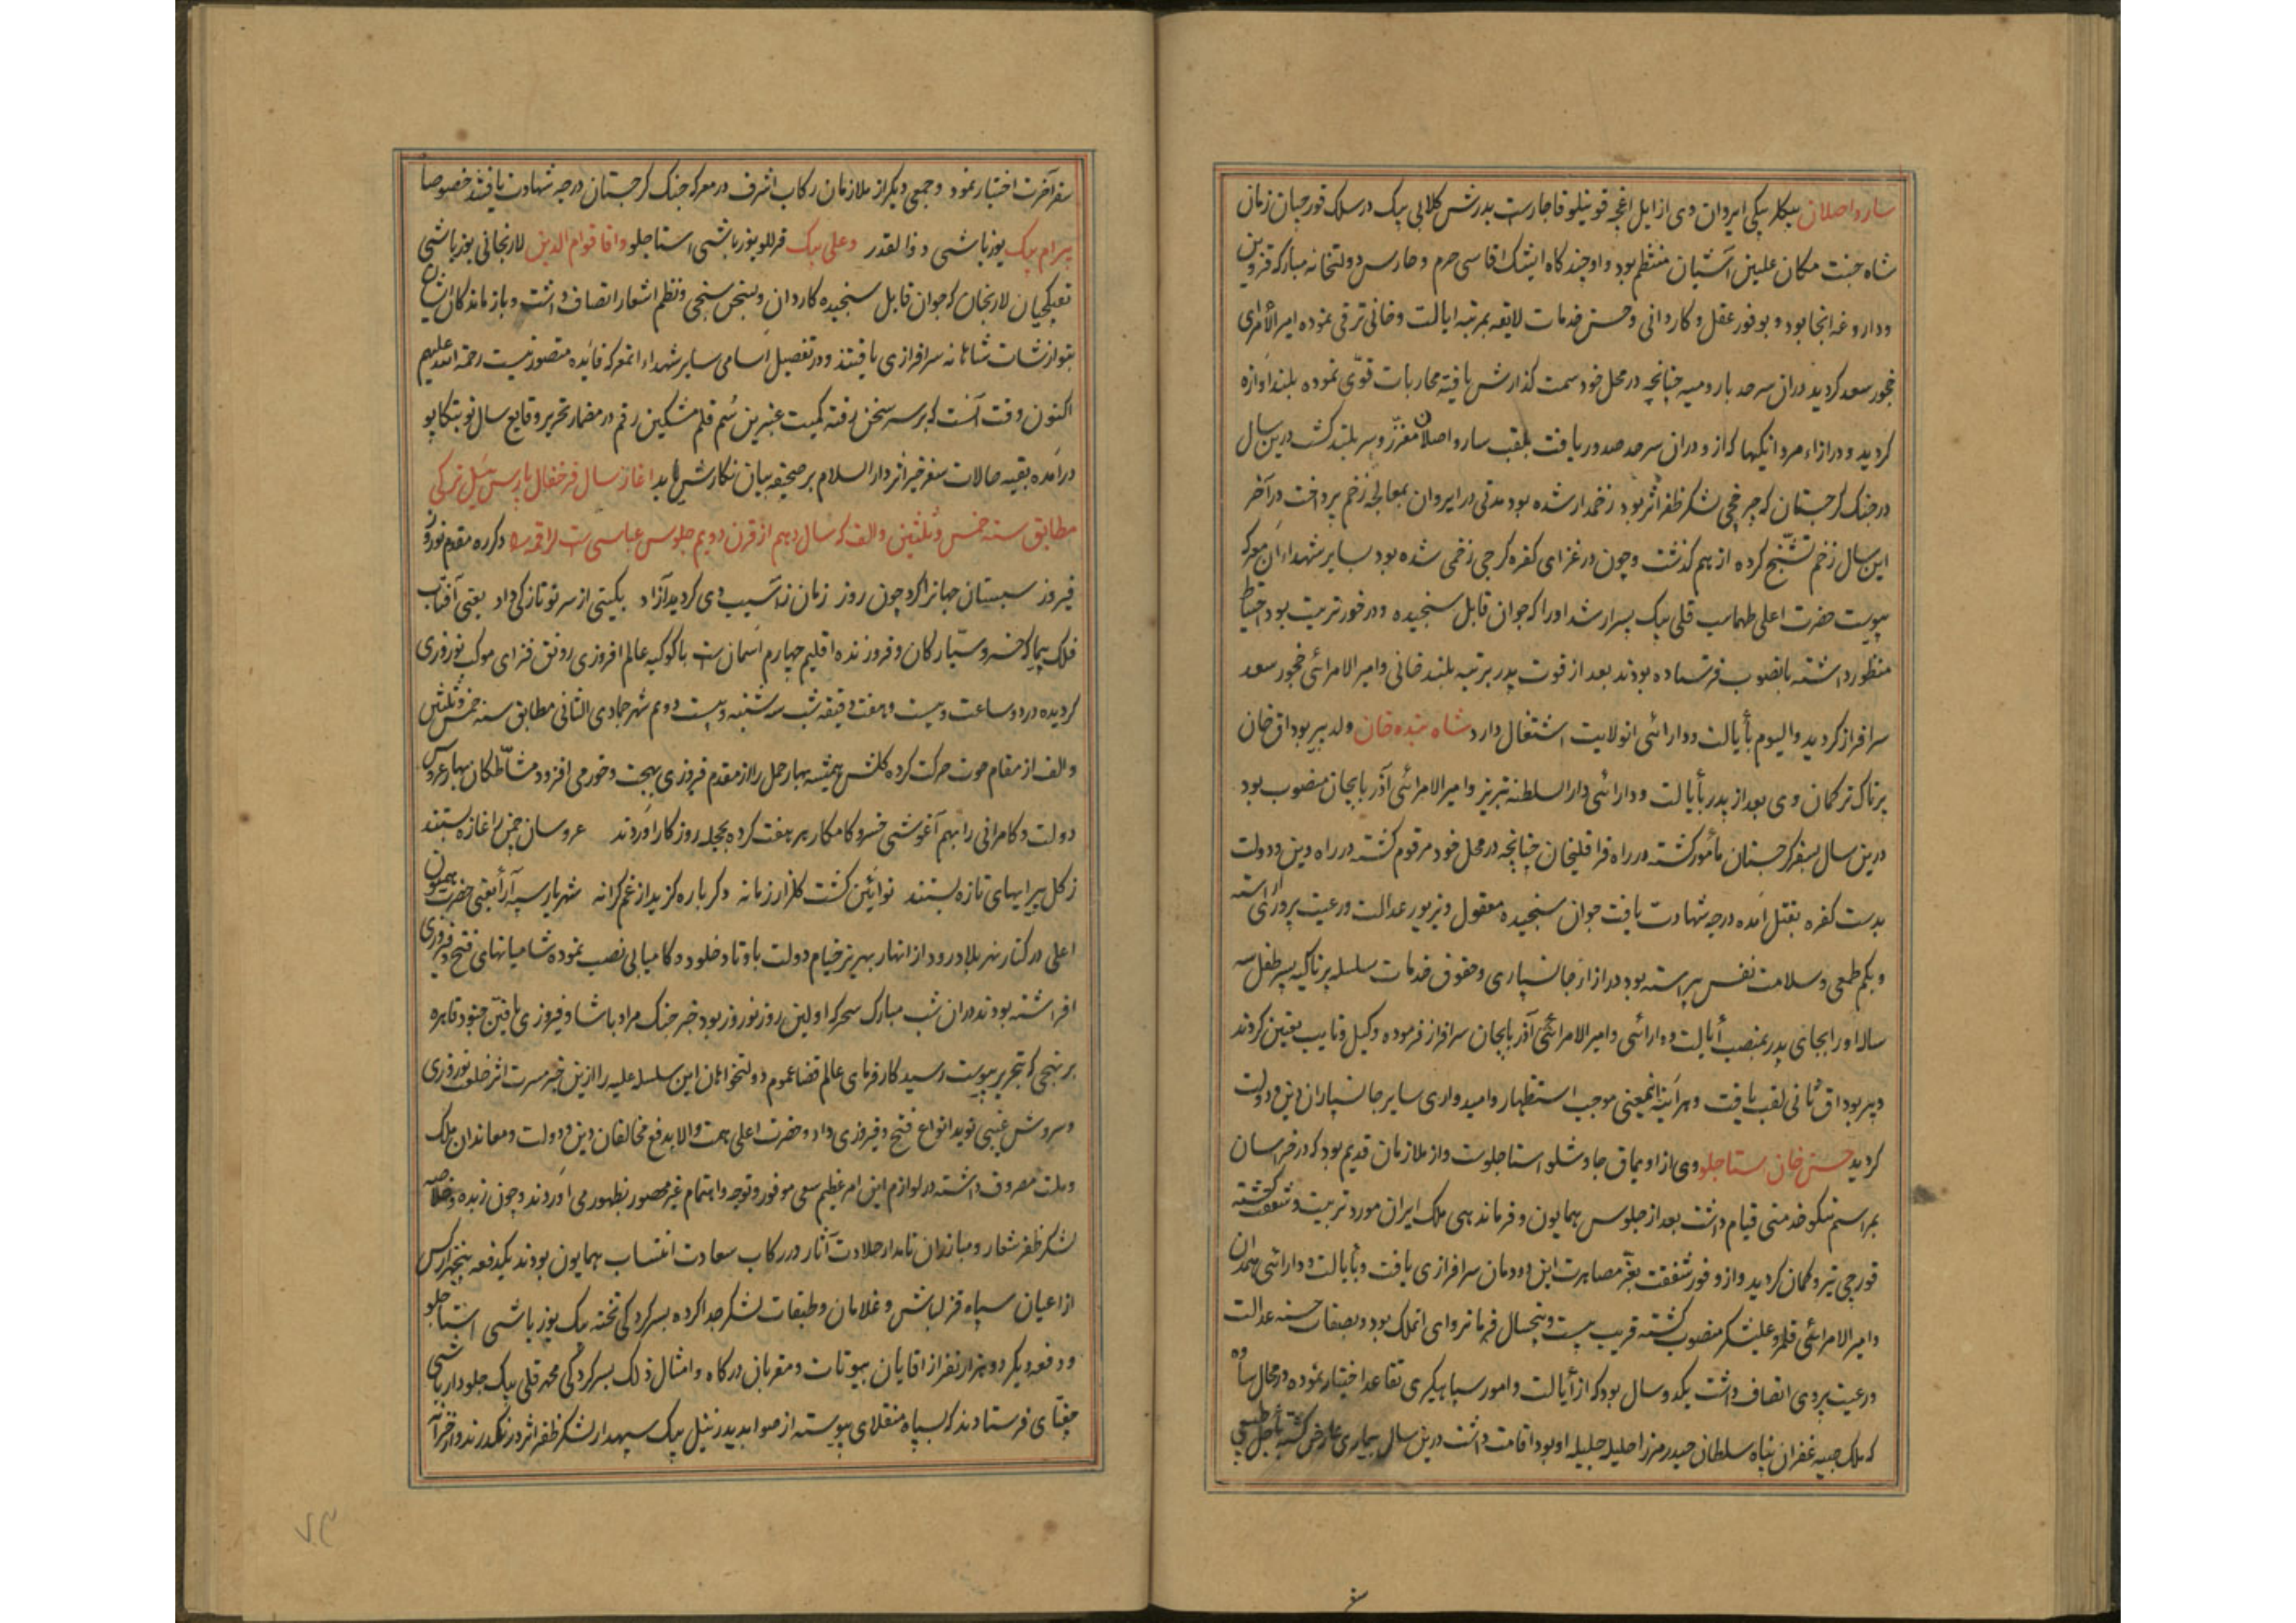 سارو اصلان بیکلربیکی ایروان وی از ایل اغچه قوینیلو قاجارست پدرش کلابی بیک در سلک قورچیان زمان
شاه جنت مکان علیین آشیان منتظم بود و او چند کاه ایشیک اقاسی حرم و حارس دولتخانه مبارکه قزوین
و داروغه انجا بود و بوفور عقل و کاردانی و حسن خدمات لایقه بمرتبه ایالت و خانی ترقی نموده امیر الأمرای
خجور سعد کردید دران سرحد بارومیه چنانچه در محل خود سمت کذارش یافته محاربات قوّی نموده بلند اوازه
کردید و درازاء مردانکیها که ازو دران سرحد صدور یافت بلقب سارو اصلان معزّز و سربلند کشت درین سال
در جنک کرجستان که چرخچی لشکر ظفر اثر بود زخمدار شده بود مدتی در ایروان بمعالجه زخم پرداخت در آخر
این سال زخم تشنّج کرده از هم کذشت و چون در غزای کفره کرجی زخمی شده بود بسایر شهداء ان معرکه
پیوست حضرت اعلی طهماسب قلی بیک پسر ارشد او را که جوان قابل سنجیده و در خور تربیت بود احتیاط
منظور داشته بانصوب فرستاده بودند بعد از فوت پدر برتبه بلند خانی و امیر الامرائی خجور سعد
سرافراز کردید والیوم بأیالت و دارائی انولایت اشتغال دارد شاه بنده خان ولد پیر بوداق خان
پرناک ترکمان وی بعد از پدر بأیالت و دارائی دار السلطنه تبریز و امیر الامرائی آذربایجان منصوب بود
درین سال بسفر کرجستان مأمور کشته در راه قراقلیخان چنانچه در محل خود مرقوم کشته در راه دین و دولت
بدست کفره بقتل آمده درجه شهادت یافت جوان سنجیده معقول و بزیور عدالت و رعیت پروری اراسته
و بکم طمعی و سلامت نفس پیراسته بود درازاء جانسپاری و حقوق خدمات سلسله پرناکیه پسر طفل سه
ساله او را بجای پدر بمنصب أیالت و دارائی و امیر الامرائی آذربایجان سرافراز فرموده وکیل و نایب تعیین کردند
و پیر بوداق ثانی لقب یافت و هر آینه اینمعنی موجب استظهار و امیدواری سایر جانسپاران دین و دولت
کردید حسن خان استاجلو وی از اویماق جاوشلو استاجلوست و از ملازمان قدیم بود که در خراسان
بمراسم نیکو خدمتی قیام داشت بعد از جلوس همایون و فرماندهی ملک ایران مورد تربیت و شفقت کشته
قورچی تیر و کمان کردید و از وفور شفقت بعزّ مصاهرت این دودمان سرافرازی یافت و بأیالت و دارائی همدان
و امیر الامرائی قلمرو علیشکر منصوب کشته قریب بیست و پنجسال فرمانروای انملک بود و بصفات حسنه عدالت
و رعیت پروری اتصاف داشت یکدو سال بود که از أیالت و امور سپاهیکری تقاعد اختیار نموده در محال ساوه
که ملک صبیه غفران پناه سلطان حیدر میرزا حلیله جلیله او بود اقامت داشت درین سال بیماری عارض کشته بأجل طبیعی
سفر
سفر آخرت اختیار نمود و جمعی دیکر از ملازمان رکاب اشرف در معرکه جنک کرجستان درجه شهادت یافتند خصوصا
پیرام بیک یوزباشی ذوالقدر و علی بیک قرللو یوزباشی استاجلو و اقا قوام الدین لارنجانی یوزباشی
تفنکچیان لارنجان که جوان قابل سنجیده کاردان و بسخن سنجی و نظم اشعار اتصاف داشت و بازماندکان ایشان
بنوازشات شاهانه سرافرازی یافتند و در تفصیل اسامی سایر شهداء انمعرکه فائده متصور نیست رحمة الله علیهم
اکنون وقت آنست که بر سر سخن رفته کمیت عنبرین سُم قلم مشکین رقم در مضمار تحریر وقایع سال نو بتکاپو
درآمده بقیه حالات سفر خیر اثر دار السلام بر صحیفه بیان نکارش یابد اغاز سال فرخفال پارس ئیل ترکی
مطابق سنه خمس و ثلثین و الف که سال دهم از قرن دویم جلوس عباسی است لراقمه دکر ره مقدم نوروز
فیروز سبستان جهانرا کرد چون روز زمان ز آسیب دی کردید آزاد بکیتی از سر نو تازکی داد یعنی آفتاب
فلک پیما که خسرو سیّارکان و فروزنده اقلیم چهارم آسمان ست با کوکبه عالم افروزی رونق فزای موکب نوروزی
کردیده در دو ساعت و بیست و هفت دقیقه شب سه شنبه بیست دوم شهر جمادی الثانی مطابق سنه خمس و ثلثین
و الف از مقام حوت حرکت کرده کلشن همیشه بهار حمل را از مقدم فیروزی بهجت و خورمی افزود مشاطکان بهار عروس
دولت و کامرانی را بهم آغوشی خسرو کامکار هر هفت کرده بحجله روزکار آوردند عروسان چمن را غازه بستند
ز کل پیرایهای تازه بستند نوآئین کشت کلزار زمانه دکر باره کزید از غم کرانه شهریار سپه آرا یعنی حضرت همیون
اعلی در کنار نهر بلادرود از انهار بهریز خیام دولت باوتاد خلود و کامیابی نصب نموده شامیانهای فتح و فیروزی
افراشته بودند دران شب مبارک سحر که اولین روز نوروز بود خبر جنک مراد پاشا و فیروزی یافتن جنود قاهره
بر نهجی که بتحریر پیوست رسید کارفرمای عالم قضا عموم دولتخواهان این سلسله علیه را ازین خبر مسرت اثر خلعت نوروزی
و سروش غیبی نوید انواع فتح و فیروزی داد و حضرت اعلی همت والا بدفع مخالفان دین و دولت و معاندان ملک
و ملت مصروف داشته در لوازم این امر عظیم سعی موفور و توجه و اهتمام غیر محصور بظهور می آوردند و چون زبده و خلاصه
لشکر ظفر شعار و مبارزان نامدار جلادت آثار در رکاب سعادت انتساب همایون بودند یکدفعه پنجهزار کس
از اعیان سپاه قزلباش و غلامان و طبقات لشکر جدا کرده بسرکردکی تخته بیک یوزباشی استاجلو
و دفعه دیکر دو هزار نفر از اقایان بیوتات و مقربان درکاه و امثال ذلک بسرکردکی محمد قلی بیک جلودار باشی
چغتای فرستادند که بسپاه منقلای پیوسته از صوابدید زینل بیک سپهدار لشکر ظفر اثر در نکذرند و از خزانه